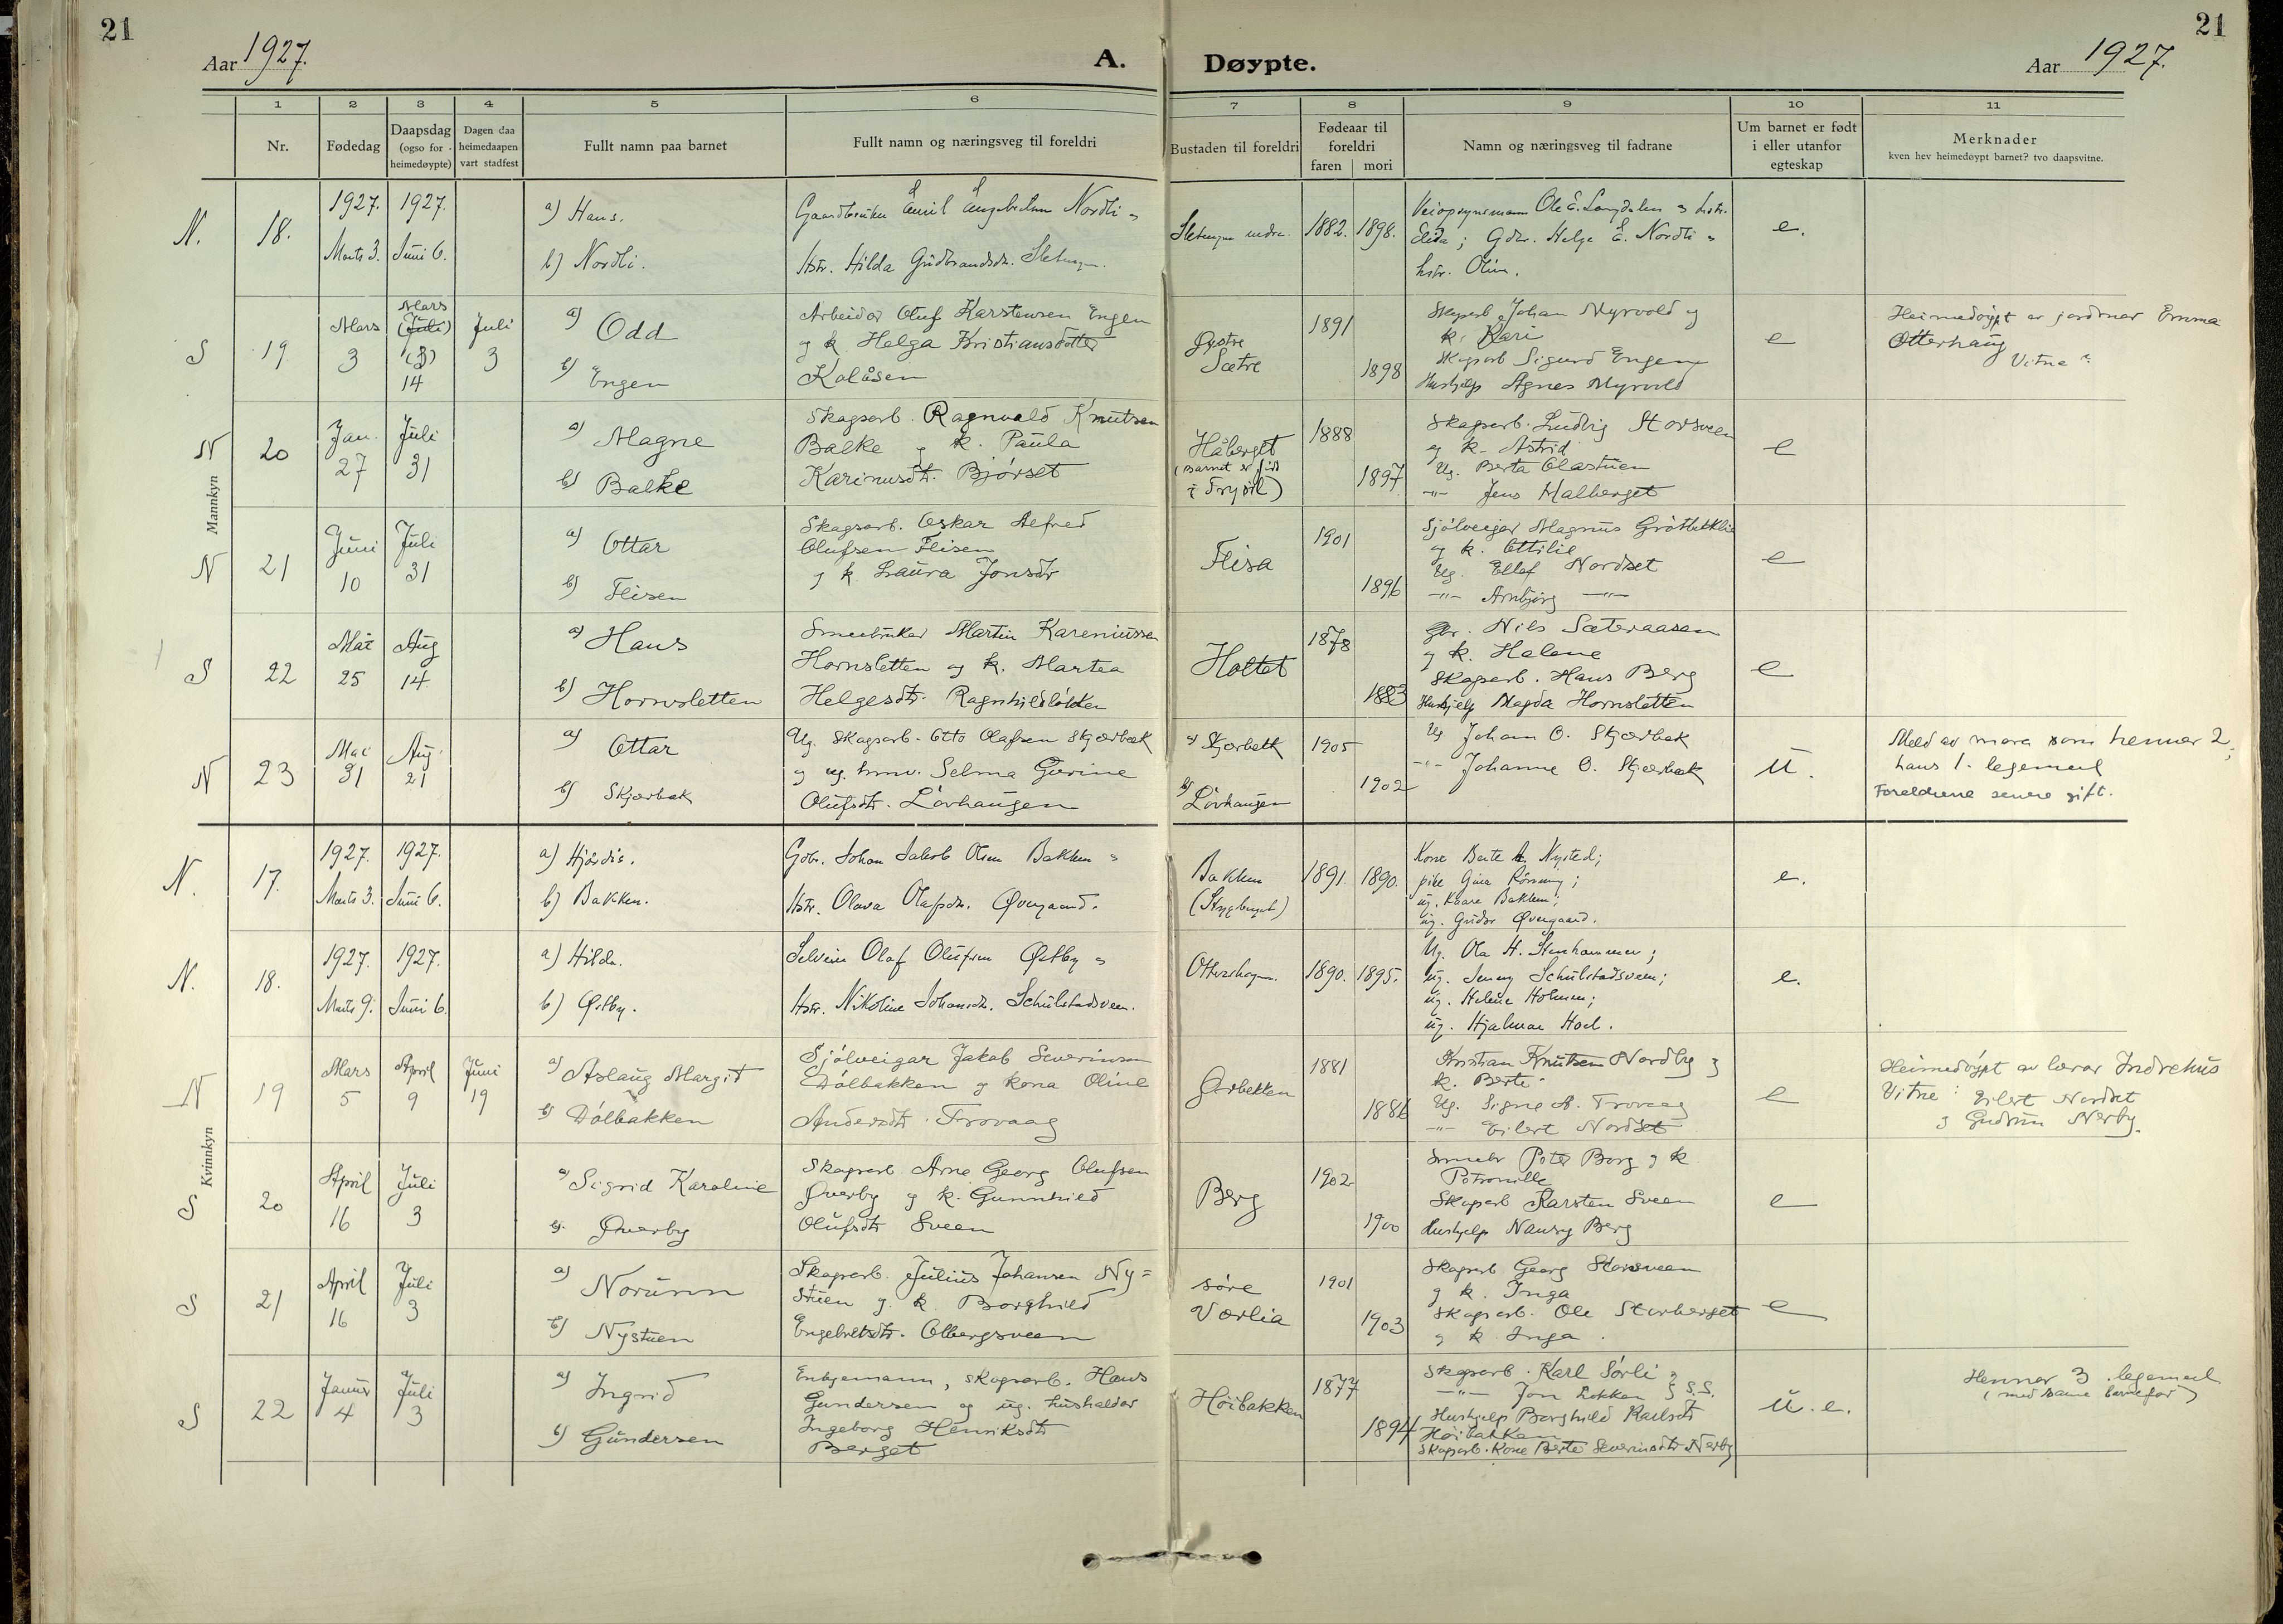 21
21
Aar 1927.
A. Døypte.
Aar 1927.
1 2 3 4 5 6 7 8 9 10 11
Nr.
Fødedag
Daapsdag (ogso for heimedøypte)
Dagen daa heimedaapen vart stadfest
Fullt namn paa barnet
Fullt namn og næringsveg til foreldri
Bustaden til foreldri
Fødeaar til foreldri
faren mori
Namn og næringsveg til fadrane
Um barnet er født i eller utanfor egteskap
Merknader
kven hev heimedøypt barnet? tvo daapsvitne.
Mannkyn
N. 18. 1927. Marts 3. 1927. Juni 6.
a) Hans.
b) Nordli.
Gaardbruker Emil Nordli
Hstr. Hilda Gudbrandsdr.
1882. 1898.
Ole E. hstr.
Elida; Gdbr. Helge E. Nordli
hstr. Oline.
e.
S 19. Mars 3 Mars (Juli) (3) 14 Juli 3
a) Odd
b) Engen
Arbeidar Oluf Karstensen Engen
og k. Helga Kristiansdotter
Kolåsen
Øystre
Sætre
1891 1898
Skogsarb. Johan Myrvold og
k. Kari
Skogsarb Sigurd Engen
Hushjelp Agnes Myrvold
e
Heimedøypt av jordmor Emma
Otterhaug
Vitne?
N 20 Jan. 27 Juli 31
a) Magne
b) Balke
Skogsarb. Ragnvald Knutsen
Balke og k. Paula
Karinusdt. Bjørset
Håberget
(Barnet er født
i Trysil)
1888 1897
Skogsarb. Ludvig Storsveen
og k. Astrid
Ug. Berta Olastuen
-"- Jens Halberget
e
N 21 Juni 10 Juli 31
a) Ottar
b) Flisen
Skogsarb. Oskar Alfred
Olufsen Flisen
og k. Laura Jonsdtr
Flisa
1901 1896
Sjølveigar Magnus
og k. Ottilie
Ug. Ellef Nordset
-"- Arnbjørg -"-
e
S 22 Mai 25 Aug 14
a) Hans
b) Hornsletten
Smeebruker Martin Kareniussen
Hornsletten og k. Martea
Helgesdtr. Ragnhildløkken
Holtet
1878 1883
gbr. Nils Sæteraasen
og k. Helene
Skogsarb. Hans Berg
Hushjelp Magda Hornsletten
e
N 23 Mai 31 Aug. 21
a) Ottar
b) Skjærbæk
Ug. Skogsarb. Otto Olafsen Skjærbæk
og ug. Selma Gurine
Olufsdtr. Løvhaugen
a) Skjærbekk
b) Løvhaugen
1905 1902
Ug Johan O. Skjærbæk
-"- Johanne O. Skjærbæk
U.
Meld av mora som hennar 2,
hans 1. legemaal
Foreldrene senere gift.
Kvinnkyn
N. 17. 1927. Marts 3. 1927. Juni 6.
a) Hjørdis.
b) Bakken.
Gdbr. Johan Jakob Olsen Bakken
Hstr. Olava Olafsdr. Øvergaard.
Bakken
1891. 1890.
Kone Berte A. Nysted;
pike Gina
ug. Kaare Bakken;
ug. Gudor Øvergaard.
e.
N. 18. 1927. Marts 9. 1927. Juni 6.
a) Hilda.
b) Østby.
Selveier Olaf Olufsen Østby
Hstr. Nikoline Johansdr. Schulstadsveen.
1890. 1895.
Ug. Ola H. Stenhammer;
ug. Jenny Schulstadsveen;
ug. Helene Holmen;
ug. Hjalmar Hoel.
e.
N 19 Mars 5 April 9 Juni 19
a) Aslaug Margit
b) Dølbakken
Sjølveigar Jakob Severinsen
Dølbakken og kona Oline
Andersdtr. Trovaag
Gjerbekken
1881 1886
Kristian Knutsen Nordby og
k. Berte
Ug. Signe A. Trovaag
-"- Eilert Nordset
e
Heimedøypt av lærar Indrehus
Vitne: Eilert Nordset
og Gudrun Nerby.
S 20 April 16 Juli 3
a) Sigrid Karoline
b) Øverby
Skogsarb Arne Georg Olufsen
Øverby og k. Gunnhild
Olufsdtr Sveen
Berg
1902 1900
Smebr Peter Berg og k
Petronille
Skogsarb Karsten Sveen
Hushjelp Nansy Berg
e
S 21 April 16 Juli 3
a) Norunn
b) Nystuen
Skogsarb. Julius Johansen Ny=
stuen og k. Borghild
Engebretsdtr. Olbergsveen
søre
Værlia
1901 1903
Skogsarb Georg Storsveen
og k. Inga
Skogsarb. Ole Storberget
og k. Inga.
e
S 22 Januar 4 Juli 3
a) Ingrid
b) Gundersen
Enkjemann, skogsarb. Hans
Gundersen og ug. hushaldar
Ingeborg Henriksdtr
Berget
Høibakken
1877 1894
Skogsarb. Karl Sørli og
-"- Jon Løkken } S.S.
Hushjelp Borghild Karlsdtr
Høibakken
Skogsarb. Kone Berte Severinsdtr Nerby
U. e.
Hennar 3. legemaal
(med same barnefar)